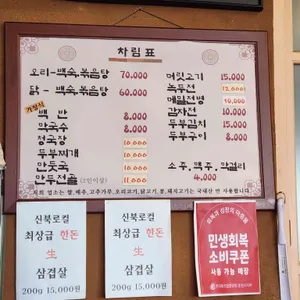 차림표
오리-백숙,볶음탕 70.000
닭-백숙,볶음탕 60.000
가정식
백반 8.000
막국수 8.000
청국장 10.000
두부찌개 10.000
만둣국 10.000
만두전골(2인이상)
머릿고기 15.000
녹두전 12.000
메밀전병 10.000
감자전 10.000
두부김치 15.000
두부구이 8.000
소주,맥주,막걸리 4.000
저희 업소는 쌀, 배추, 고추가루, 오리고기, 닭고기, 콩, 돼지고기는 국내산 만 사용합니다.
신북로컬
최상급 한돈
生
삼겹살
200g 15,000원
신북로컬
최상급 한돈
生
삼겹살
200g 15,000원
민생회복
소비쿠폰
사용 가능 매장